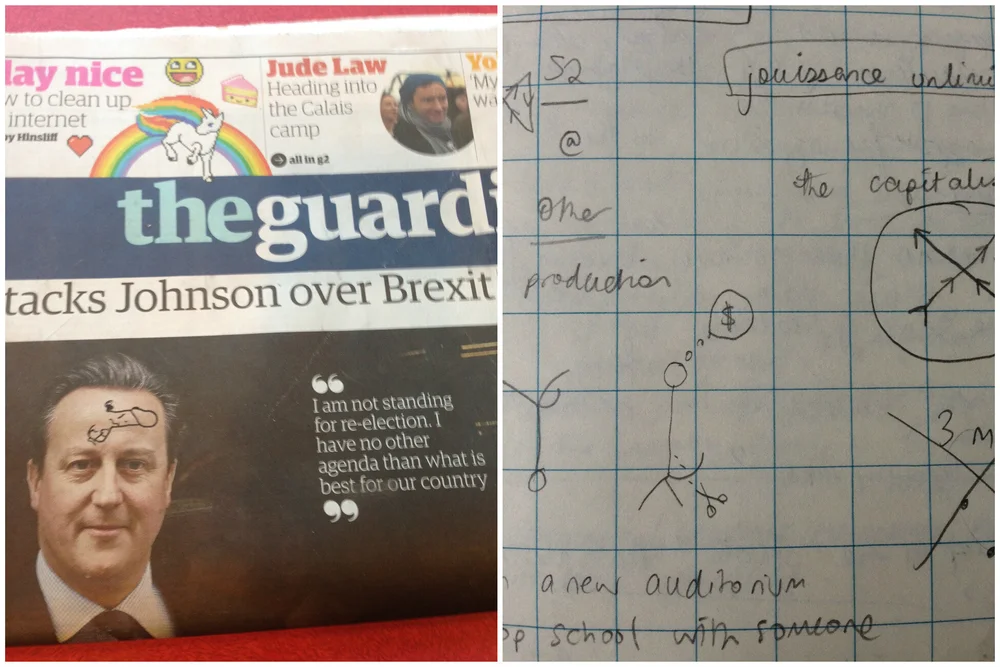 lay nice
w to clean up
internet
by Hinsliff
Jude Law
Heading into
the Calais
camp
all in g2
Yo
'My
wa
theguardi
tacks Johnson over Brexit
“
I am not standing
for re-election. I
have no other
agenda than what is
best for our country
”
S2
@
other
production
$
jouissance unlimi
the capitalis
3 m
a new auditorium
op school with someone